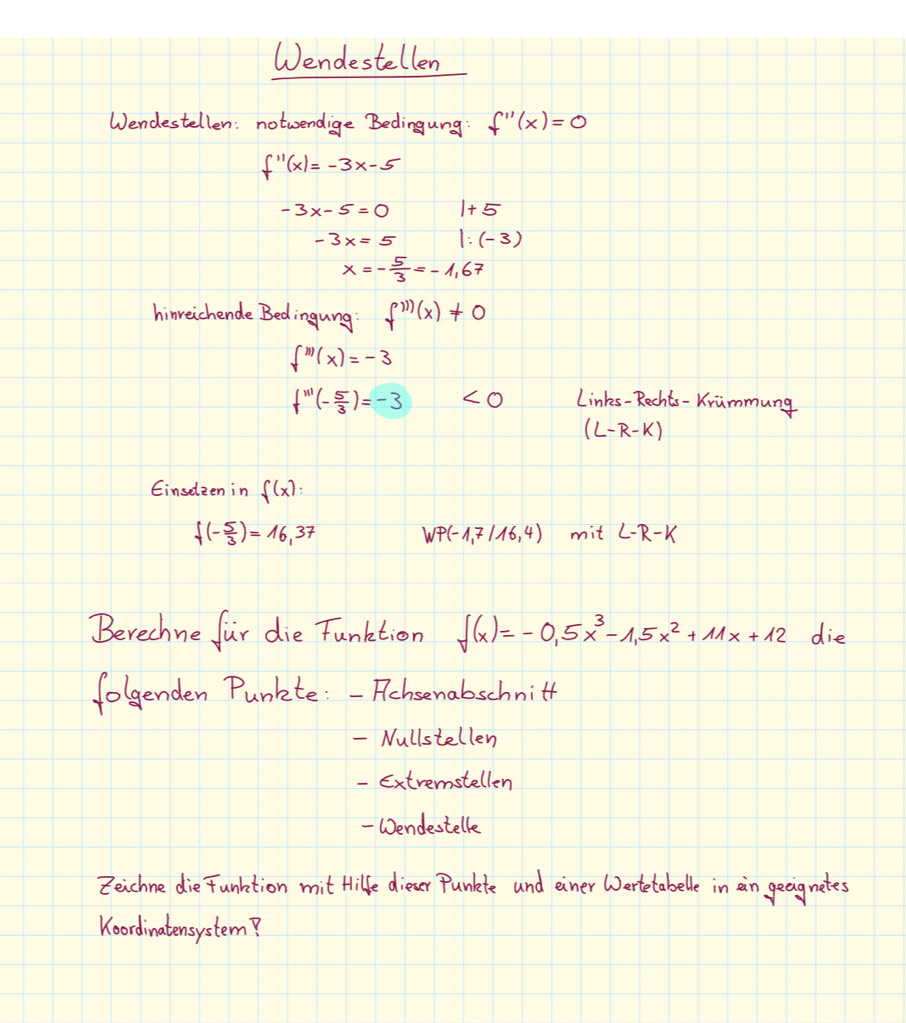 Wendestellen
Wendestellen: notwendige Bedingung: f''(x) = 0
f''(x) = -3x-5
-3x-5 = 0 |+5
-3x = 5 |:(-3)
x = -5/3 = -1,67
hinreichende Bedingung: f'''(x) ≠ 0
f'''(x) = -3
f'''(-5/3) = -3 < 0 Links-Rechts-Krümmung
(L-R-K)
Einsetzen in f(x):
f(-5/3) = 16,37 WP(-1,7/16,4) mit L-R-K
Berechne für die Funktion f(x) = -0,5x³-1,5x²+11x+12 die
folgenden Punkte: - Achsenabschnitt
- Nullstellen
- Extremstellen
- Wendestelle
Zeichne die Funktion mit Hilfe dieser Punkte und einer Wertetabelle in ein geeignetes
Koordinatensystem!